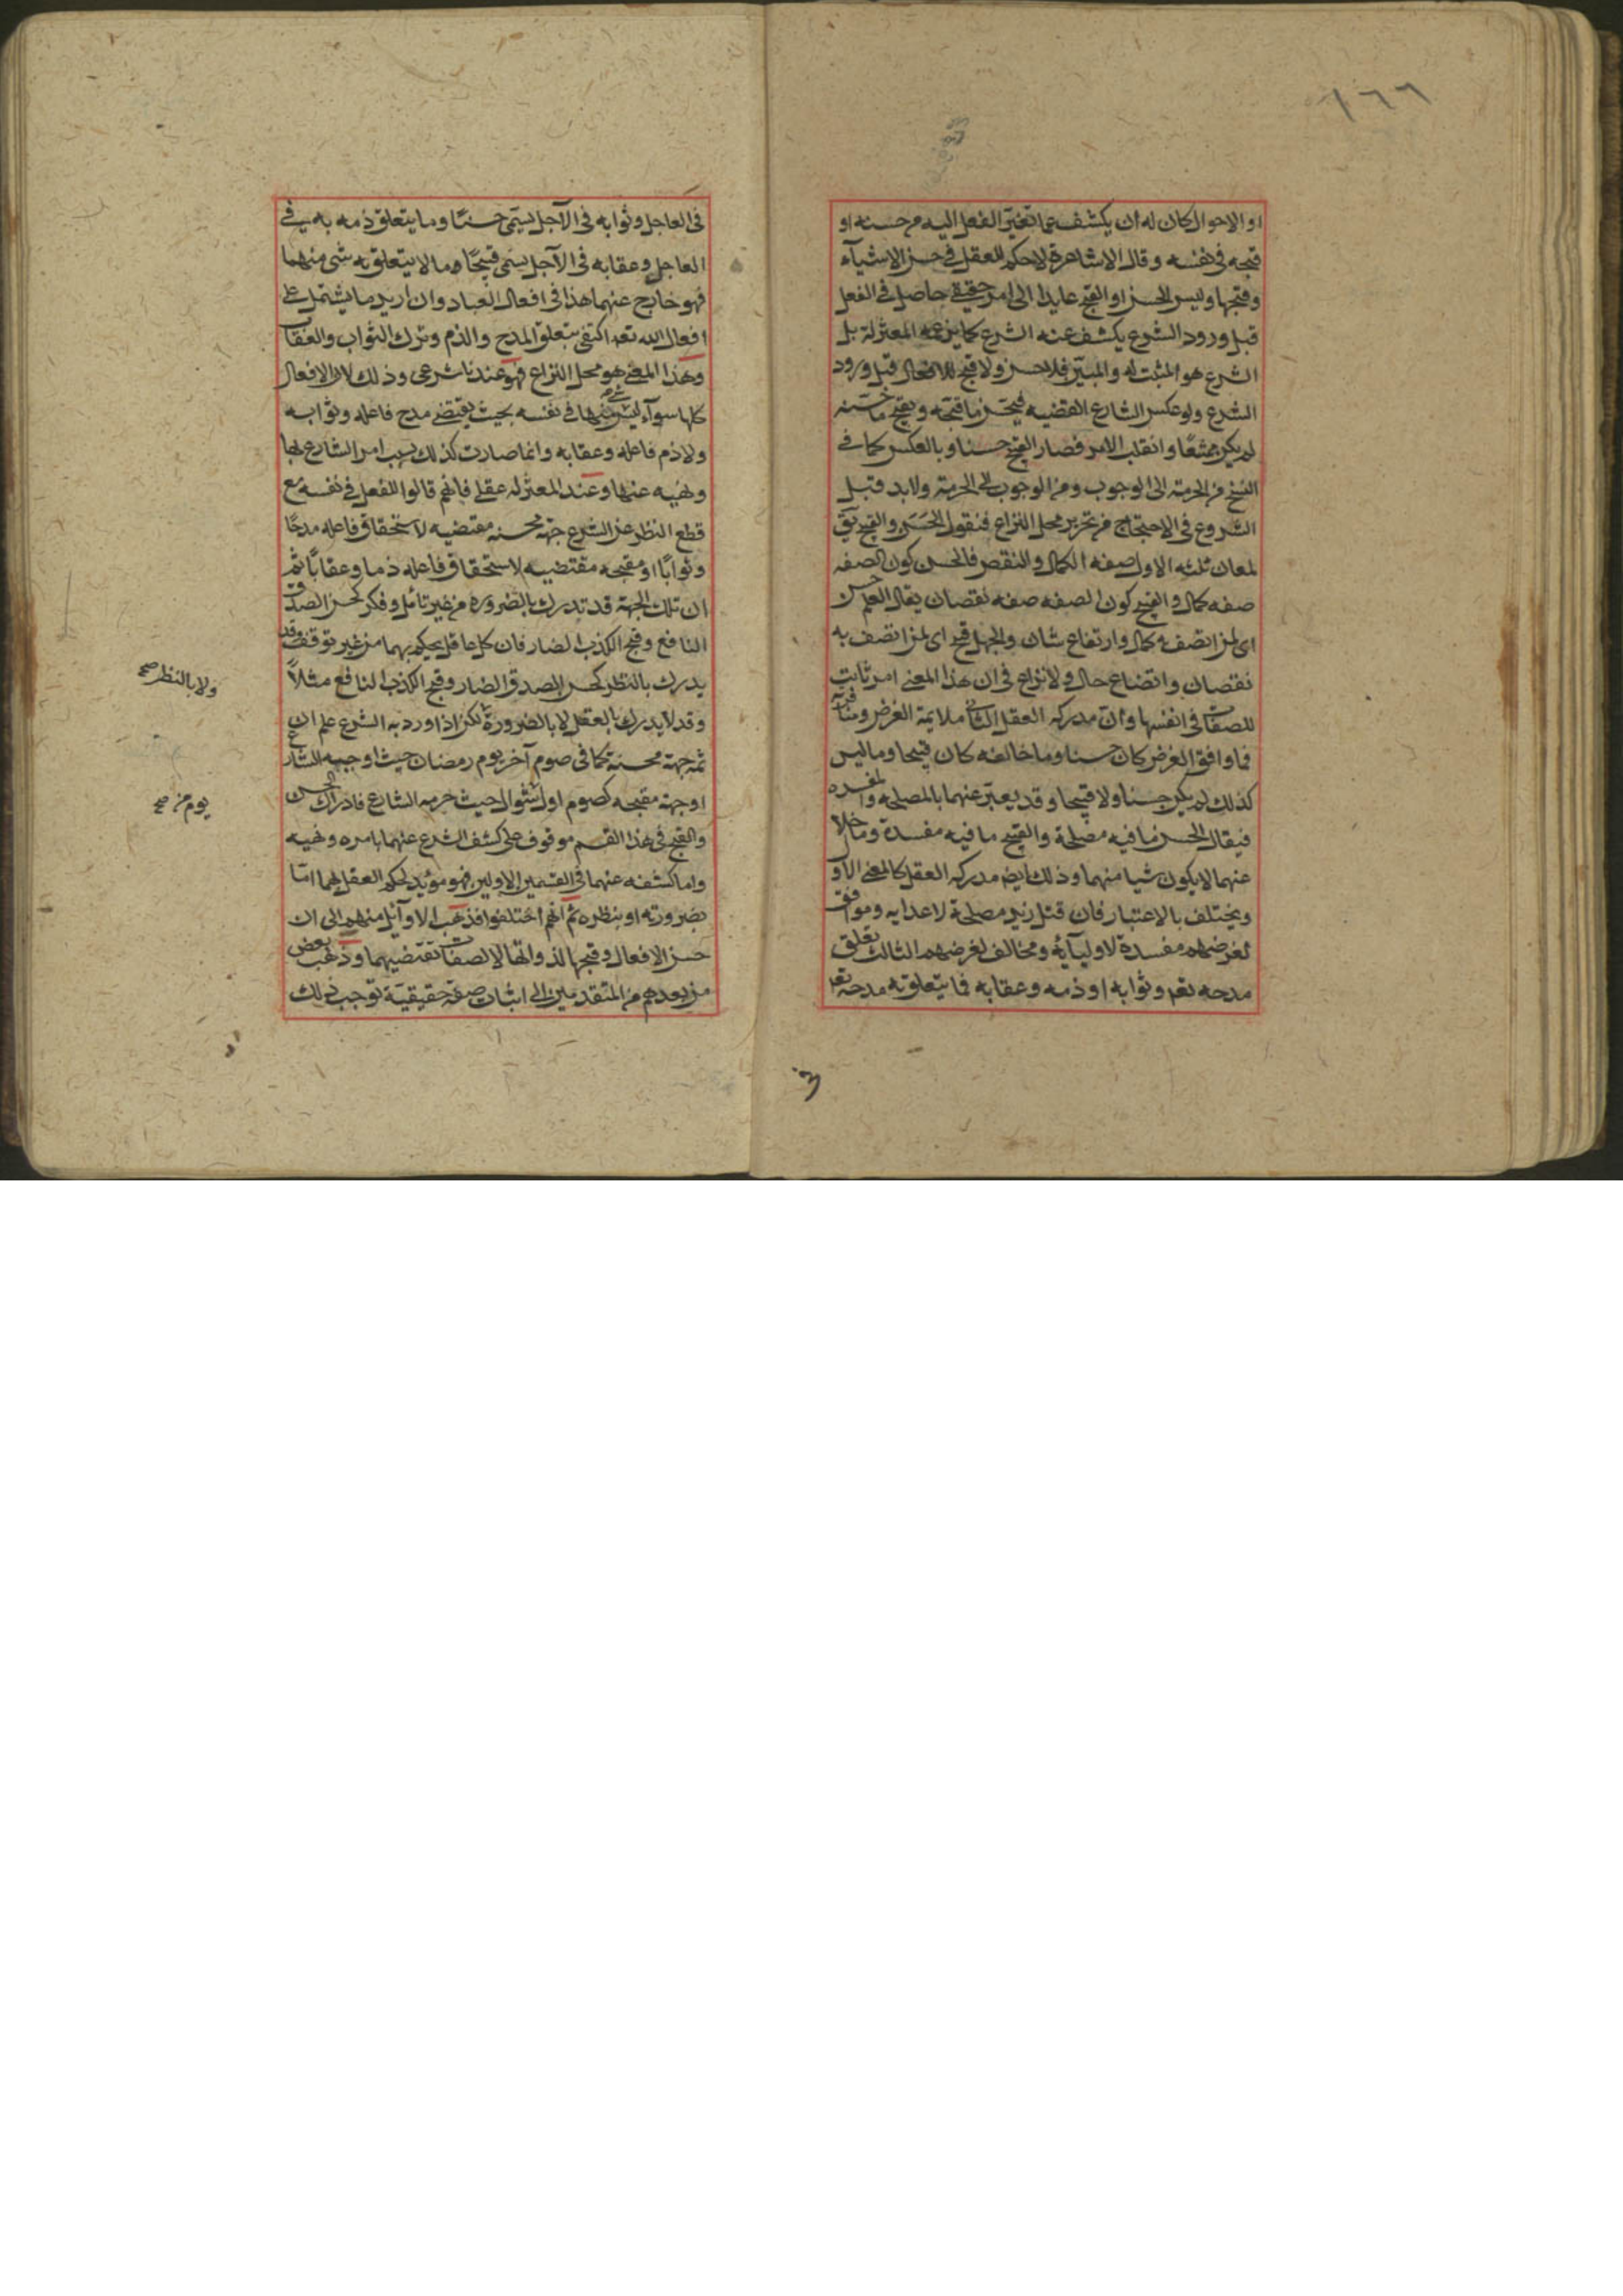 ١٦٦
او الاحوال كان له ان يكشف عما تغير الفعل اليه من حسنه او
قبحه في نفسه وقال الاشاعرة لاحكم للعقل في حسن الاشياء
وقبحها وليس الحسن او القبح عايدا الى امر حقيقي حاصل في الفعل
قبل ورود الشرع يكشف عنه الشرع كما يزعمه المعتزلة بل
الشرع هو المثبت له والمبين فلا حسن ولا قبح للافعال قبل ورود
الشرع ولو عكس الشارع القضيه فحسن ما قبحه وقبح ما حسنه
لم يكن ممتنعا وانقلب الامر فصار القبيح حسنا وبالعكس كما في
النسخ من الحرمة الى الوجوب ومن الوجوب الى الحرمة ولابد قبل
الشروع في الاحتجاج من تحرير محل النزاع فنقول الحسن والقبح يق
لمعان ثلثه الاول صفه الكمال والنقص فالحسن كون الصفه
صفه كمال والقبح كون الصفه صفه نقصان يقال العلم حسن
اى لمن اتصف به كمال وارتفاع شان والجهل قبيح اى لمن اتصف به
نقصان واتضاع حال ولا نزاع في ان هذا المعنى امر ثابت
للصفات في انفسها وان مدركه العقل الثانى ملايمة الغرض ومنافرته
فما وافق الغرض كان حسنا وما خالفه كان قبيحا وما ليس
كذلك لم يكن حسنا ولا قبيحا وقد يعبر عنهما بالمصلحه والمفسده
فيقال الحسن ما فيه مصلحة والقبيح ما فيه مفسدة وما خلا
عنهما لا يكون شيا منهما وذلك ايضا مدركه العقل كالمعنى الاول
ويختلف بالاعتبار فان قتل زيد مصلحة لاعدايه وموافق
لغرضهم مفسدة لاوليآئه ومخالف لغرضهم الثالث تعلق
مدحه تعه وثوابه او ذمه وعقابه فما يتعلق به مدحه تعه
في العاجل وثوابه في الآجل يسمى حسنًا وما يتعلق ذمه به في
العاجل وعقابه في الآجل يسمى قبيحًا وما لا يتعلق به شى منهما
فهو خارج عنهما هذا في افعال العباد وان اريد ما يشتمل على
افعال الله تعه اكتفى بتعلق المدح والذم وترك الثواب والعقاب
وهذا المعنى هو محل النزاع فهو عندنا شرعى وذلك لان الافعال
كلها سوآء ليس شى منها في نفسه بحيث يقتضى مدح فاعله وثوابه
ولا ذم فاعله وعقابه وانما صارت كذلك بسبب امر الشارع بها
ونهيه عنها وعند المعتزله عقلى فانهم قالوا للفعل في نفسه مع
قطع النظر عن الشرع جهة محسنه مقتضيه لاستحقاق فاعله مدحًا
وثوابًا او مقبحه مقتضيه لاستحقاق فاعله ذما وعقابًا ثم
ان تلك الجهة قد تدرك بالضروره من غير تأمل وفكر كحسن الصدق
النافع وقبح الكذب الضار فان كل عاقل يحكم بهما من غير توقف وقد
يدرك بالنظر كحسن الصدق الضار وقبح الكذب النافع مثلاً
وقد لا يدرك بالعقل لا بالضرورة لكن اذا ورد به الشرع علم ان
ولا بالنظر صح
ثمه جهة محسنة كما في صوم آخر يوم رمضان حيث اوجبه الشارع
يوم من صح
او جهة مقبحه كصوم اول شوال حيث حرمه الشارع فادراك الحسن
والقبح في هذا القسم موقوف على كشف الشرع عنهما بامره ونهيه
واما كشفه عنهما في القسمين الاولين فهو مؤيد لحكم العقل بهما امّا
بضرورته او بنظره ثم انهم اختلفوا فذهب الاوآئل منهم الى ان
حسن الافعال وقبحها لذواتها لا لصفات تقتضيهما وذهب بعض
من بعدهم من المتقدمين الى اثبات صفة حقيقية توجب ذلك